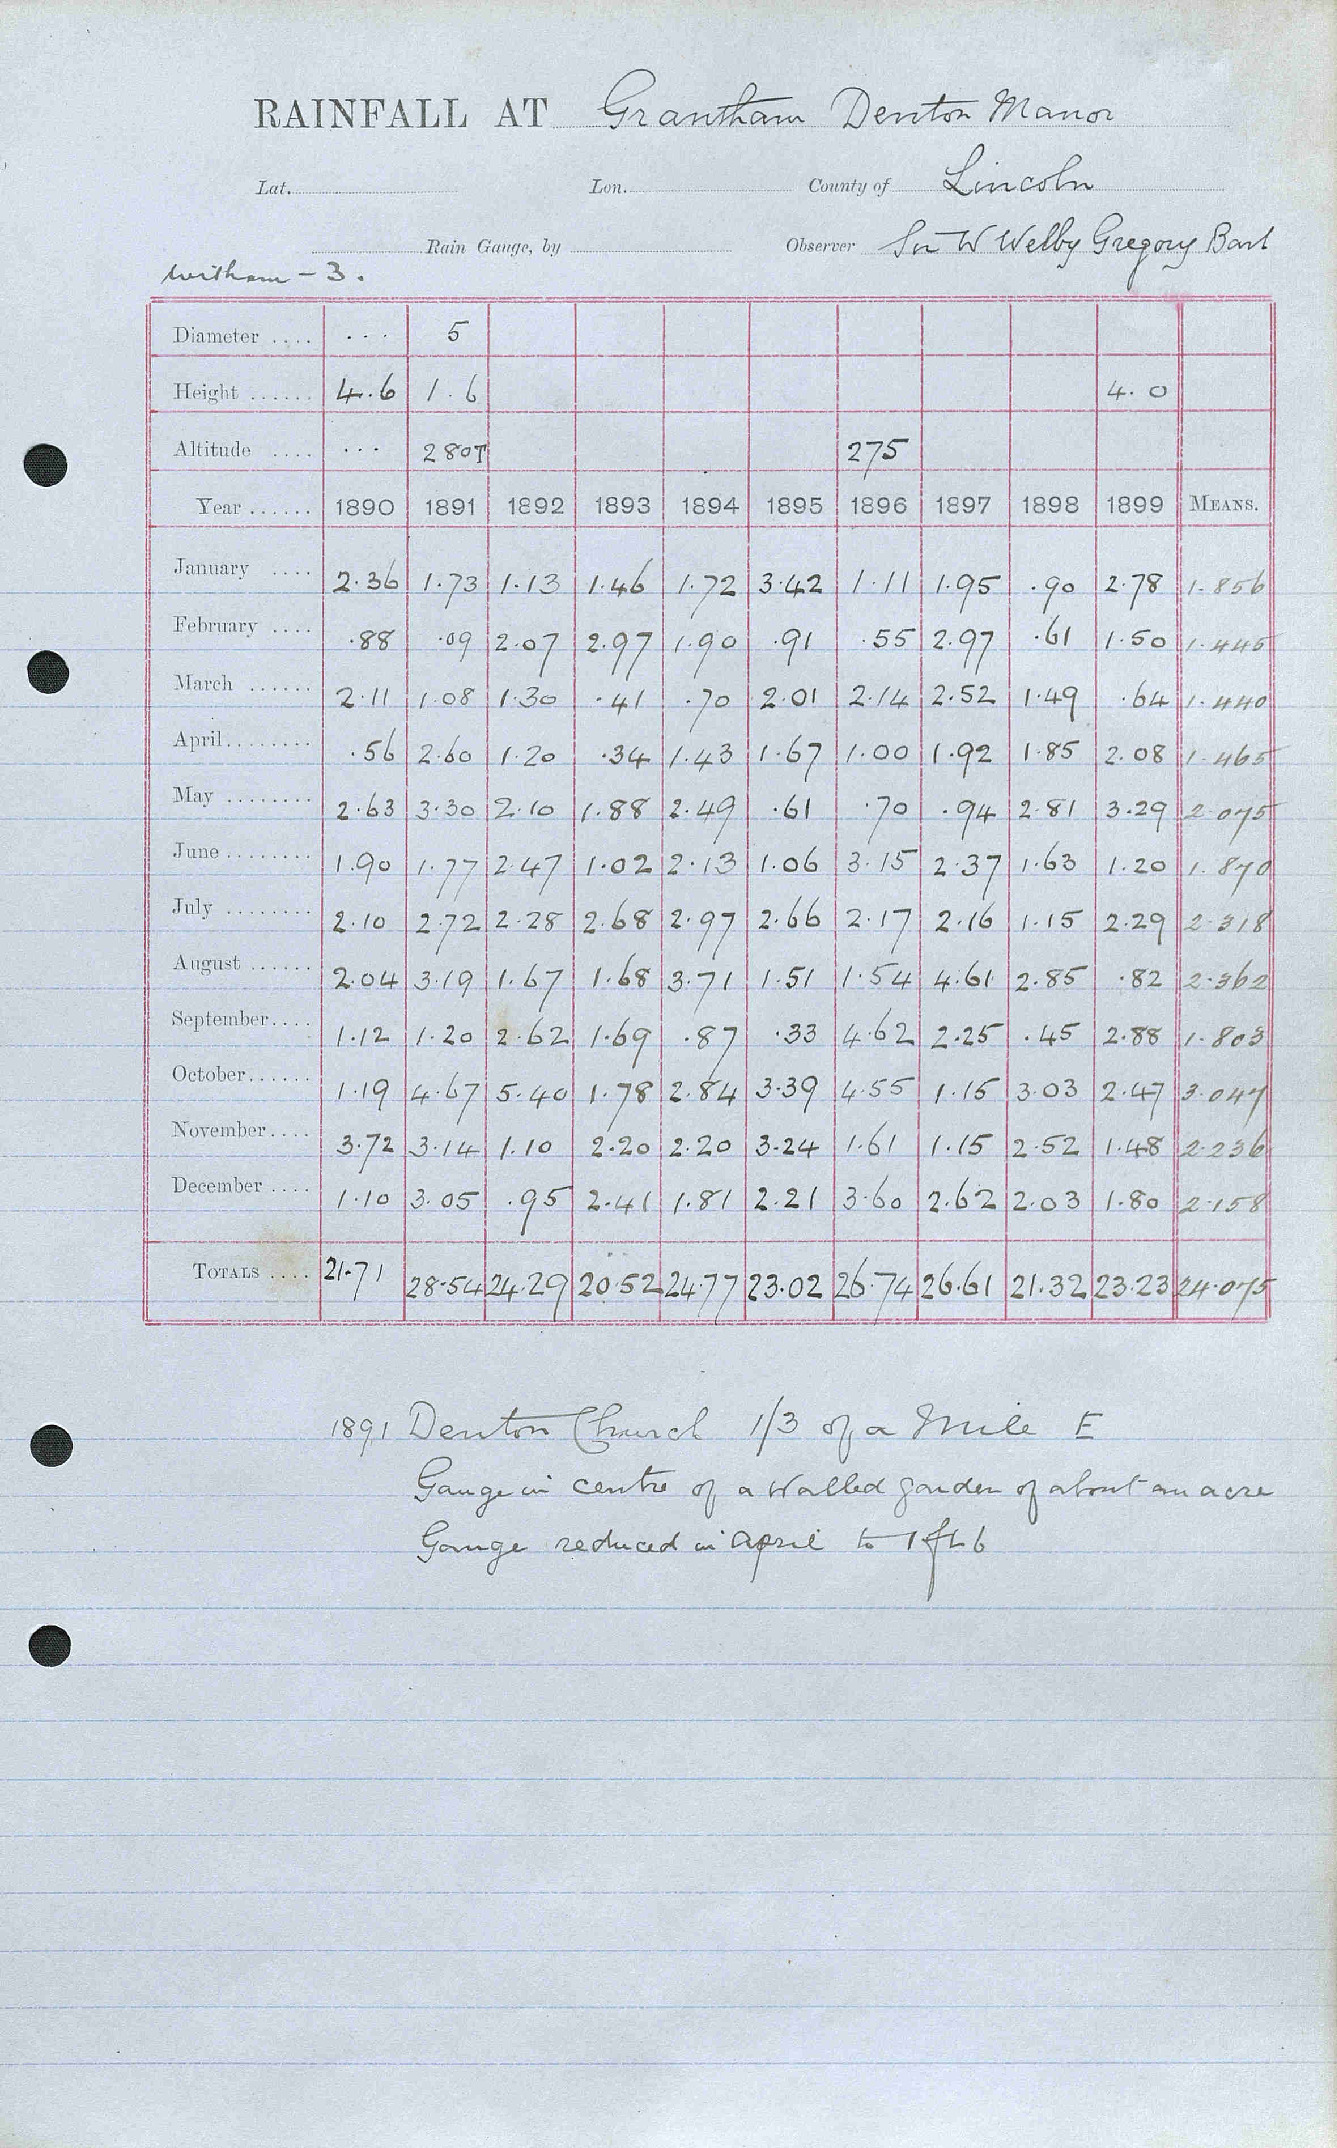 RAINFALL AT Grantham Denton Manor
Lat. Lon. County of Lincoln
Rain Gauge, by Observer Sir W Welby Gregory Bart
Witham - 3.
Diameter .... ... 5
Height ...... 4.6 1.6 4.0
Altitude .... ... 280T 275
Year ...... 1890 1891 1892 1893 1894 1895 1896 1897 1898 1899 MEANS.
January .... 2.36 1.73 1.13 1.46 1.72 3.42 1.11 1.95 .90 2.78 1.856
February .... .88 .09 2.07 2.97 1.90 .91 .55 2.97 .61 1.50 1.445
March ...... 2.11 1.08 1.30 .41 .70 2.01 2.14 2.52 1.49 .64 1.440
April........ .56 2.60 1.20 .34 1.43 1.67 1.00 1.92 1.85 2.08 1.465
May ........ 2.63 3.30 2.10 1.88 2.49 .61 .70 .94 2.81 3.29 2.075
June ........ 1.90 1.77 2.47 1.02 2.13 1.06 3.15 2.37 1.63 1.20 1.870
July ........ 2.10 2.72 2.28 2.68 2.97 2.66 2.17 2.16 1.15 2.29 2.318
August ...... 2.04 3.19 1.67 1.68 3.71 1.51 1.54 4.61 2.85 .82 2.362
September.... 1.12 1.20 2.62 1.69 .87 .33 4.62 2.25 .45 2.88 1.803
October...... 1.19 4.67 5.40 1.78 2.84 3.39 4.55 1.15 3.03 2.47 3.047
November.... 3.72 3.14 1.10 2.20 2.20 3.24 1.61 1.15 2.52 1.48 2.236
December .... 1.10 3.05 .95 2.41 1.81 2.21 3.60 2.62 2.03 1.80 2.158
TOTALS .... 21.71 28.54 24.29 20.52 24.77 23.02 26.74 26.61 21.32 23.23 24.075
1891 Denton Church 1/3 of a Mile E
Gauge in centre of a walled garden of about an acre
Gauge reduced in April to 1 ft 6